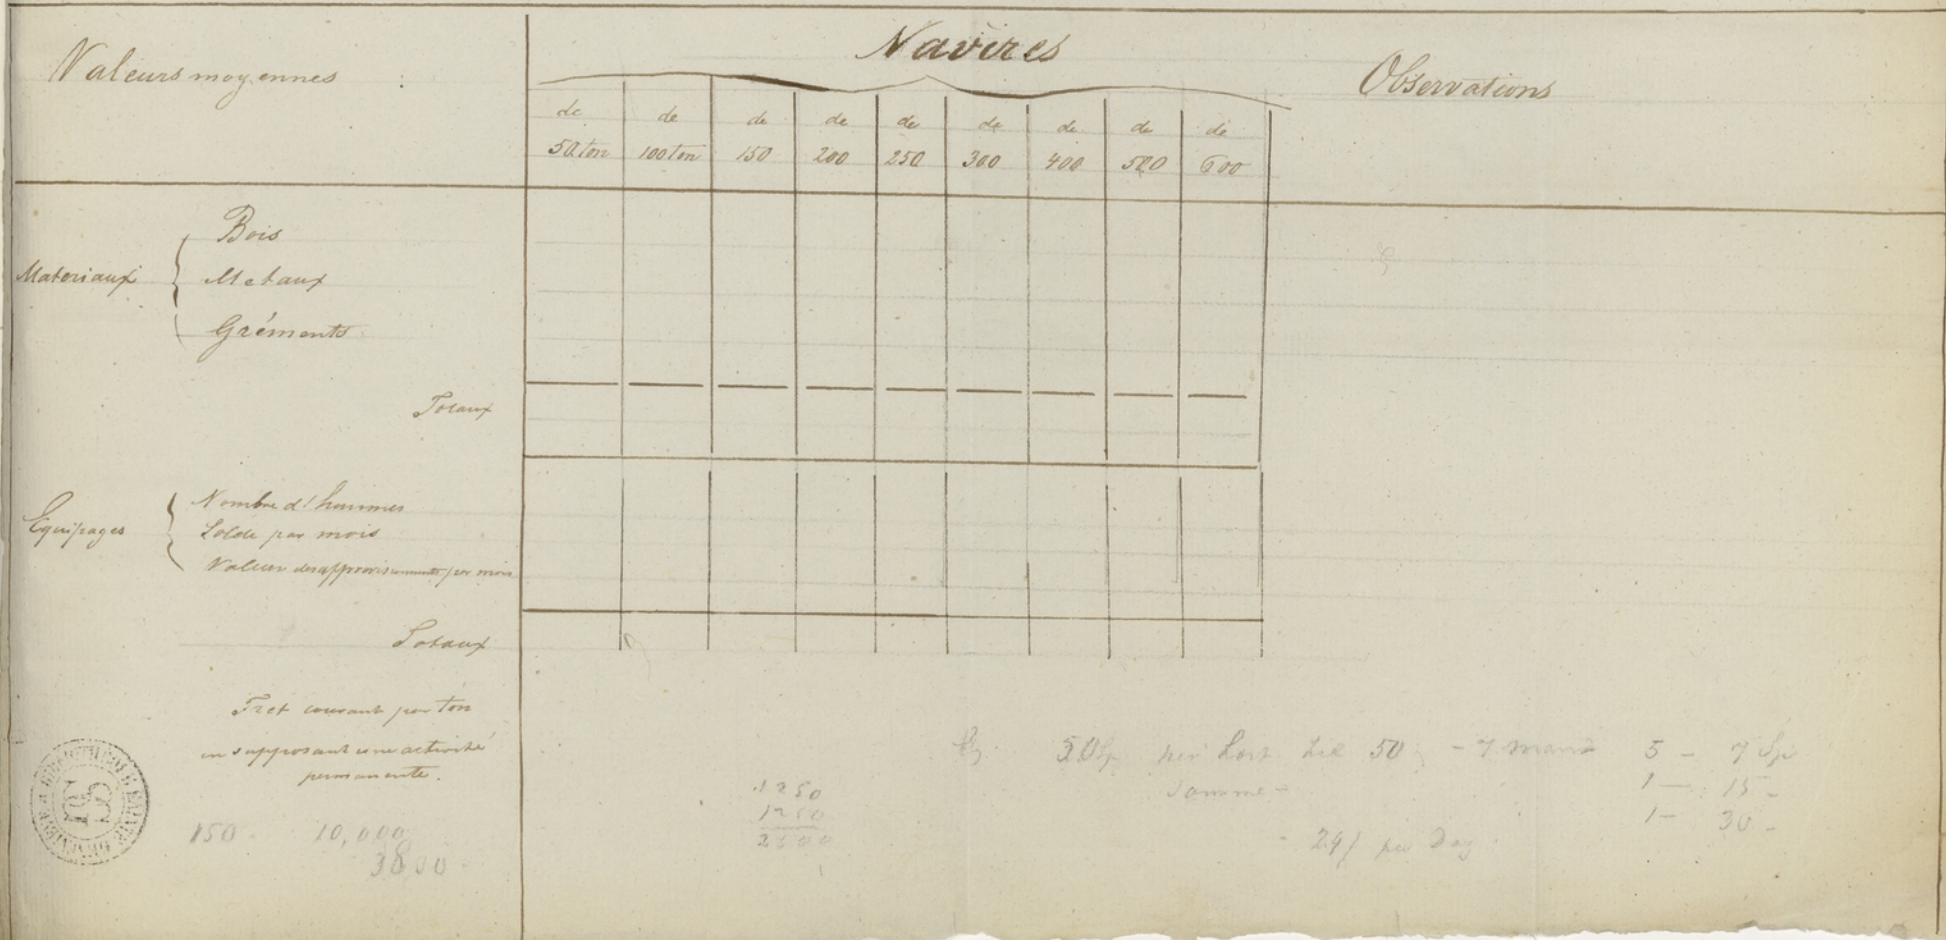 Valeurs moyennes :
Navires
Observations
de de de de de de de de de
50 ton 100 ton 150 200 250 300 400 500 600
Materiaux
Bois
Metaux
Gréments
Totaux
Equipages
Nombre d'hommes
Solde par mois
Valeur des approvisionnements par mois
Totaux
Fret courant par ton
en supposant une activité
permanente.
150 10,000
3800
1250
1250
2500
50 Sp per Last til 50 - 7 mand 5 - 7 Sp
1 - 15 -
1 - 30 -
24 per Dag